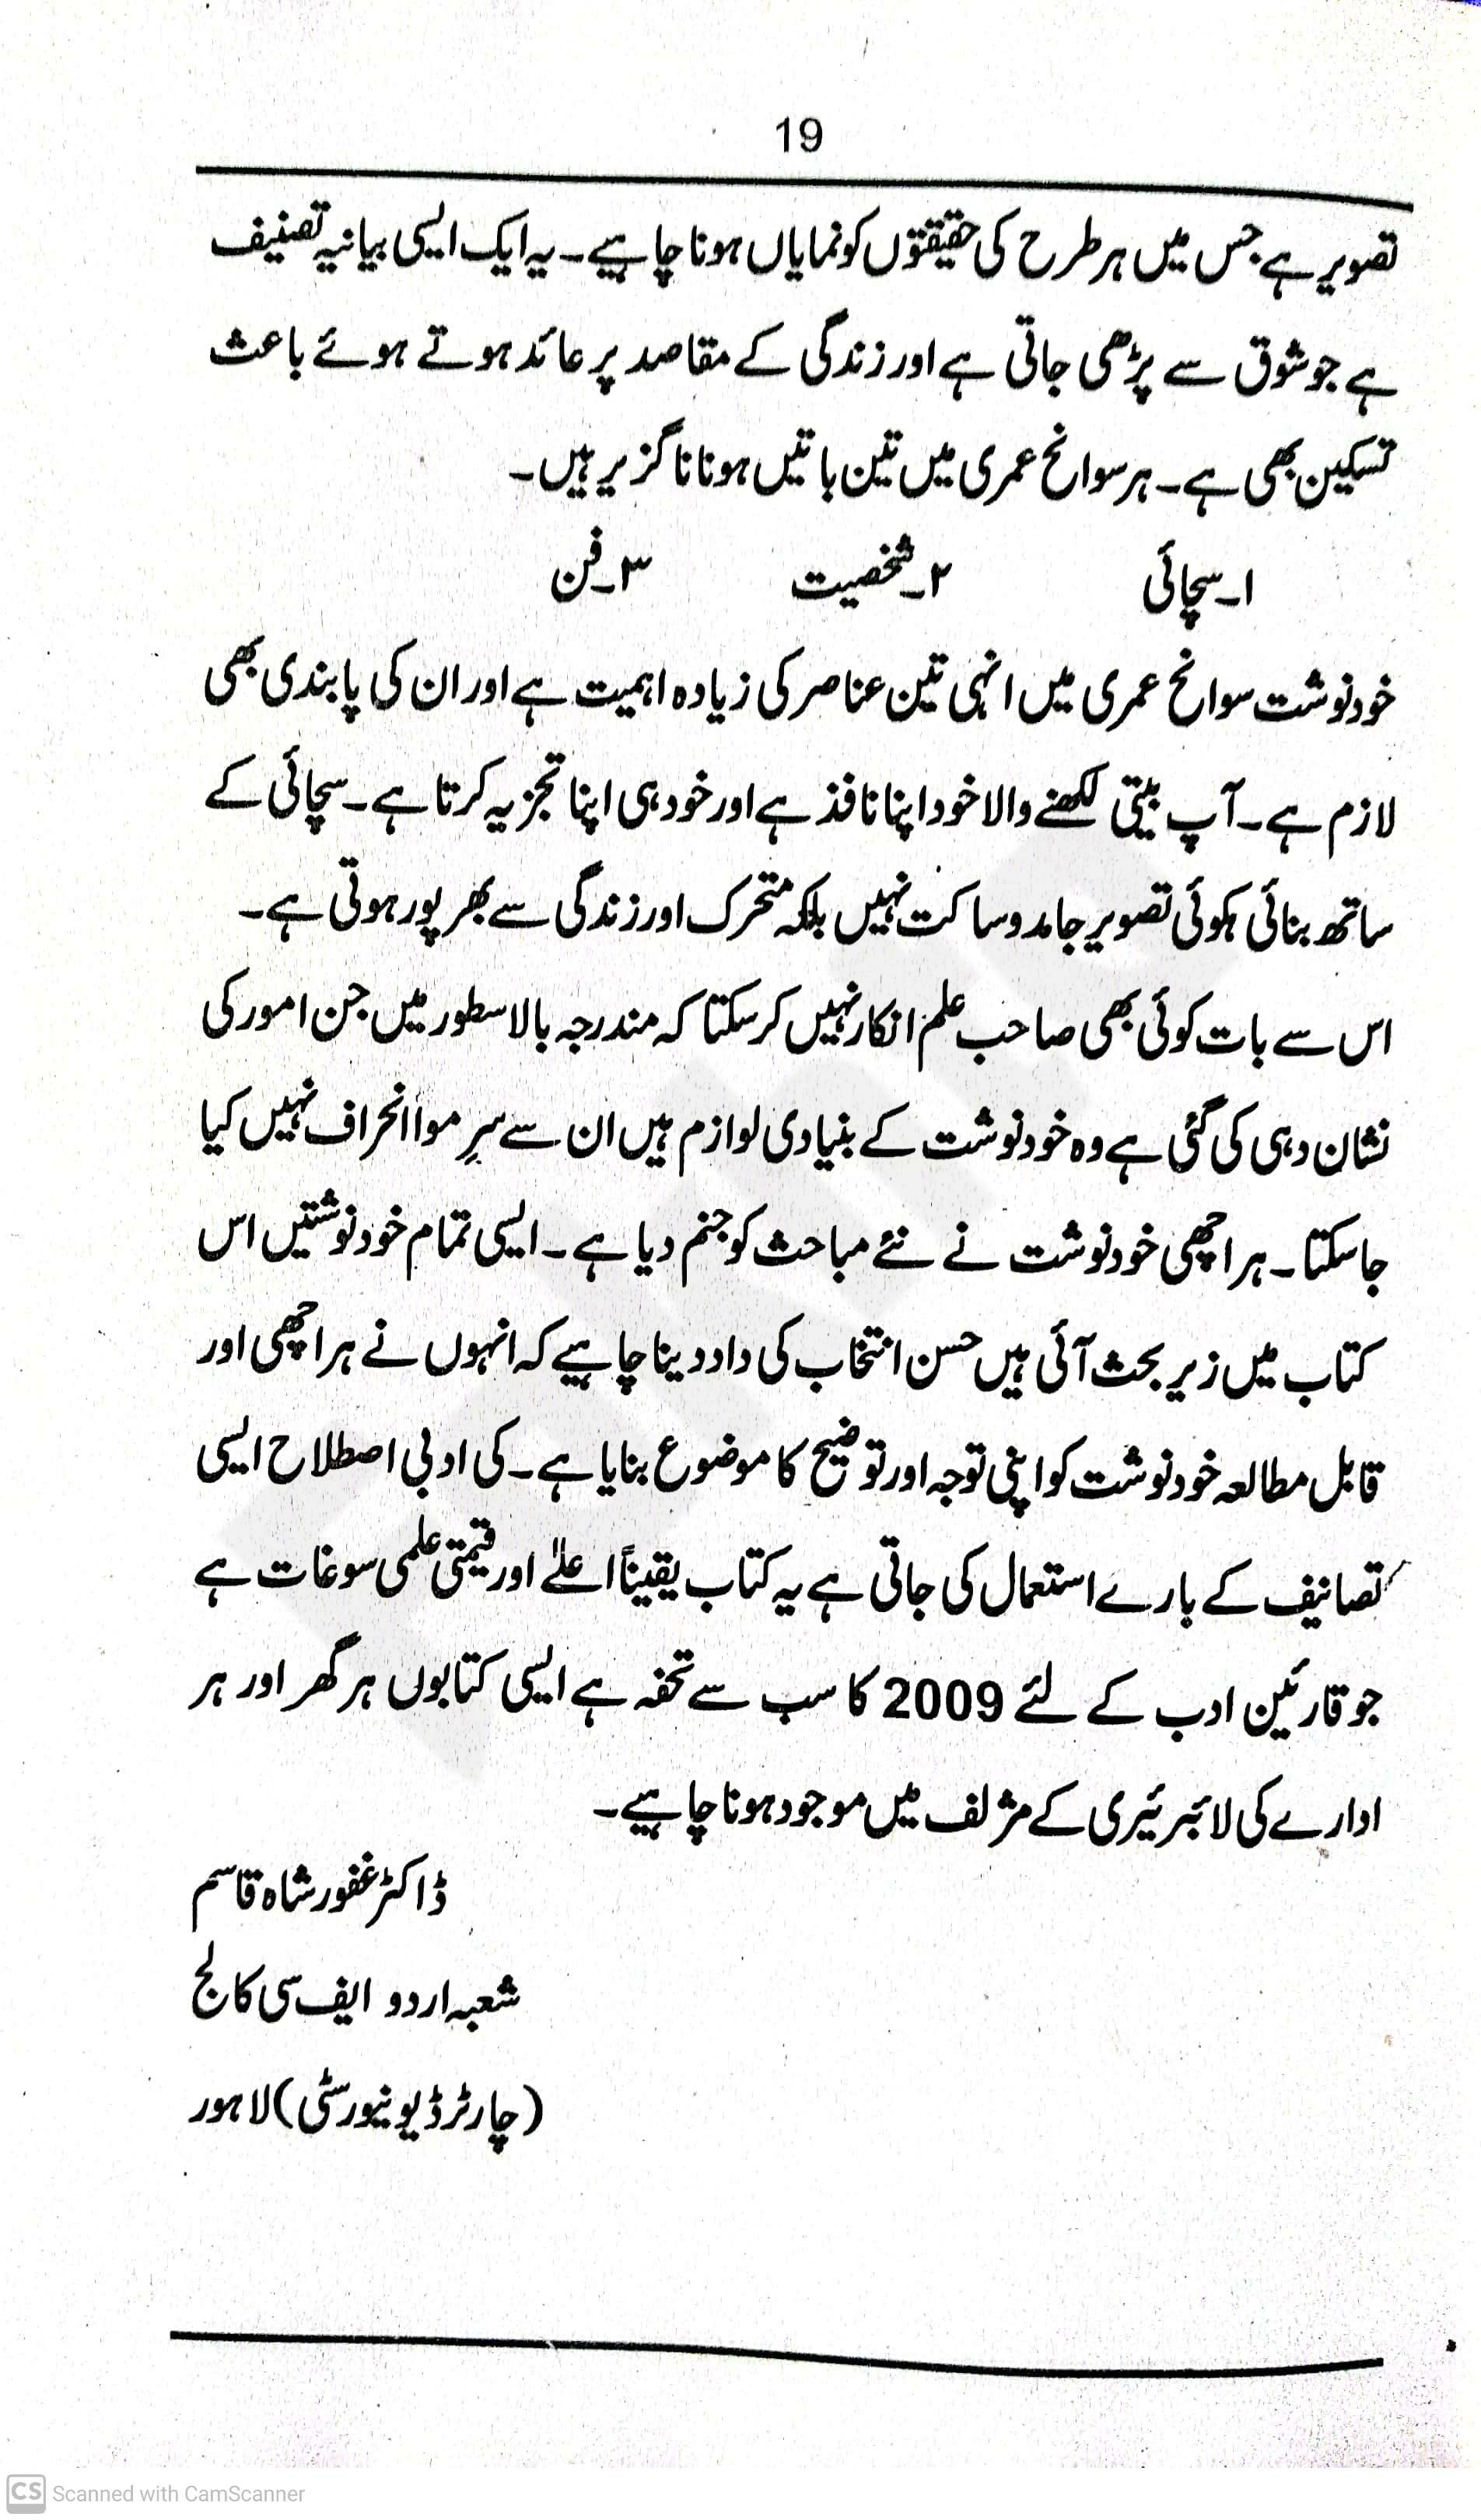 19
تصویر ہے جس میں ہر طرح کی حقیقتوں کو نمایاں ہونا چاہیے۔ یہ ایک ایسی بیانیہ تصنیف
ہے جو شوق سے پڑھی جاتی ہے اور زندگی کے مقاصد پر عائد ہوتے ہوئے باعث
تسکین بھی ہے۔ ہر سوانح عمری میں تین باتیں ہونا ناگزیر ہیں۔
۱۔سچائی ۲۔شخصیت ۳۔فن
خودنوشت سوانح عمری میں انہی تین عناصر کی زیادہ اہمیت ہے اور ان کی پابندی بھی
لازم ہے۔ آپ بیتی لکھنے والا خود اپنا نافذ ہے اور خود ہی اپنا تجزیہ کرتا ہے۔ سچائی کے
ساتھ بنائی ہکوئی تصویر جامد و ساکت نہیں بلکہ متحرک اور زندگی سے بھر پور ہوتی ہے۔
اس سے بات کوئی بھی صاحب علم انکار نہیں کر سکتا کہ مندرجہ بالا سطور میں جن امور کی
نشان دہی کی گئی ہے وہ خودنوشت کے بنیادی لوازم ہیں ان سے سرِ موا انحراف نہیں کیا
جاسکتا۔ ہر اچھی خودنوشت نے نئے مباحث کو جنم دیا ہے۔ ایسی تمام خودنوشتیں اس
کتاب میں زیر بحث آئی ہیں حسن انتخاب کی داد دینا چاہیے کہ انہوں نے ہر اچھی اور
قابل مطالعہ خودنوشت کو اپنی توجہ اور توضیح کا موضوع بنایا ہے۔ کی ادبی اصطلاح ایسی
تصانیف کے بارے استعمال کی جاتی ہے یہ کتاب یقیناً اعلےٰ اور قیمتی علمی سوغات ہے
جو قارئین ادب کے لئے 2009 کا سب سے تحفہ ہے ایسی کتابوں ہر گھر اور ہر
ادارے کی لائبرئیری کے مژلف میں موجود ہونا چاہیے۔
ڈاکٹر غفور شاہ قاسم
شعبہ اردو ایف سی کالج
(چارٹرڈ یونیورسٹی) لاہور
CS Scanned with CamScanner